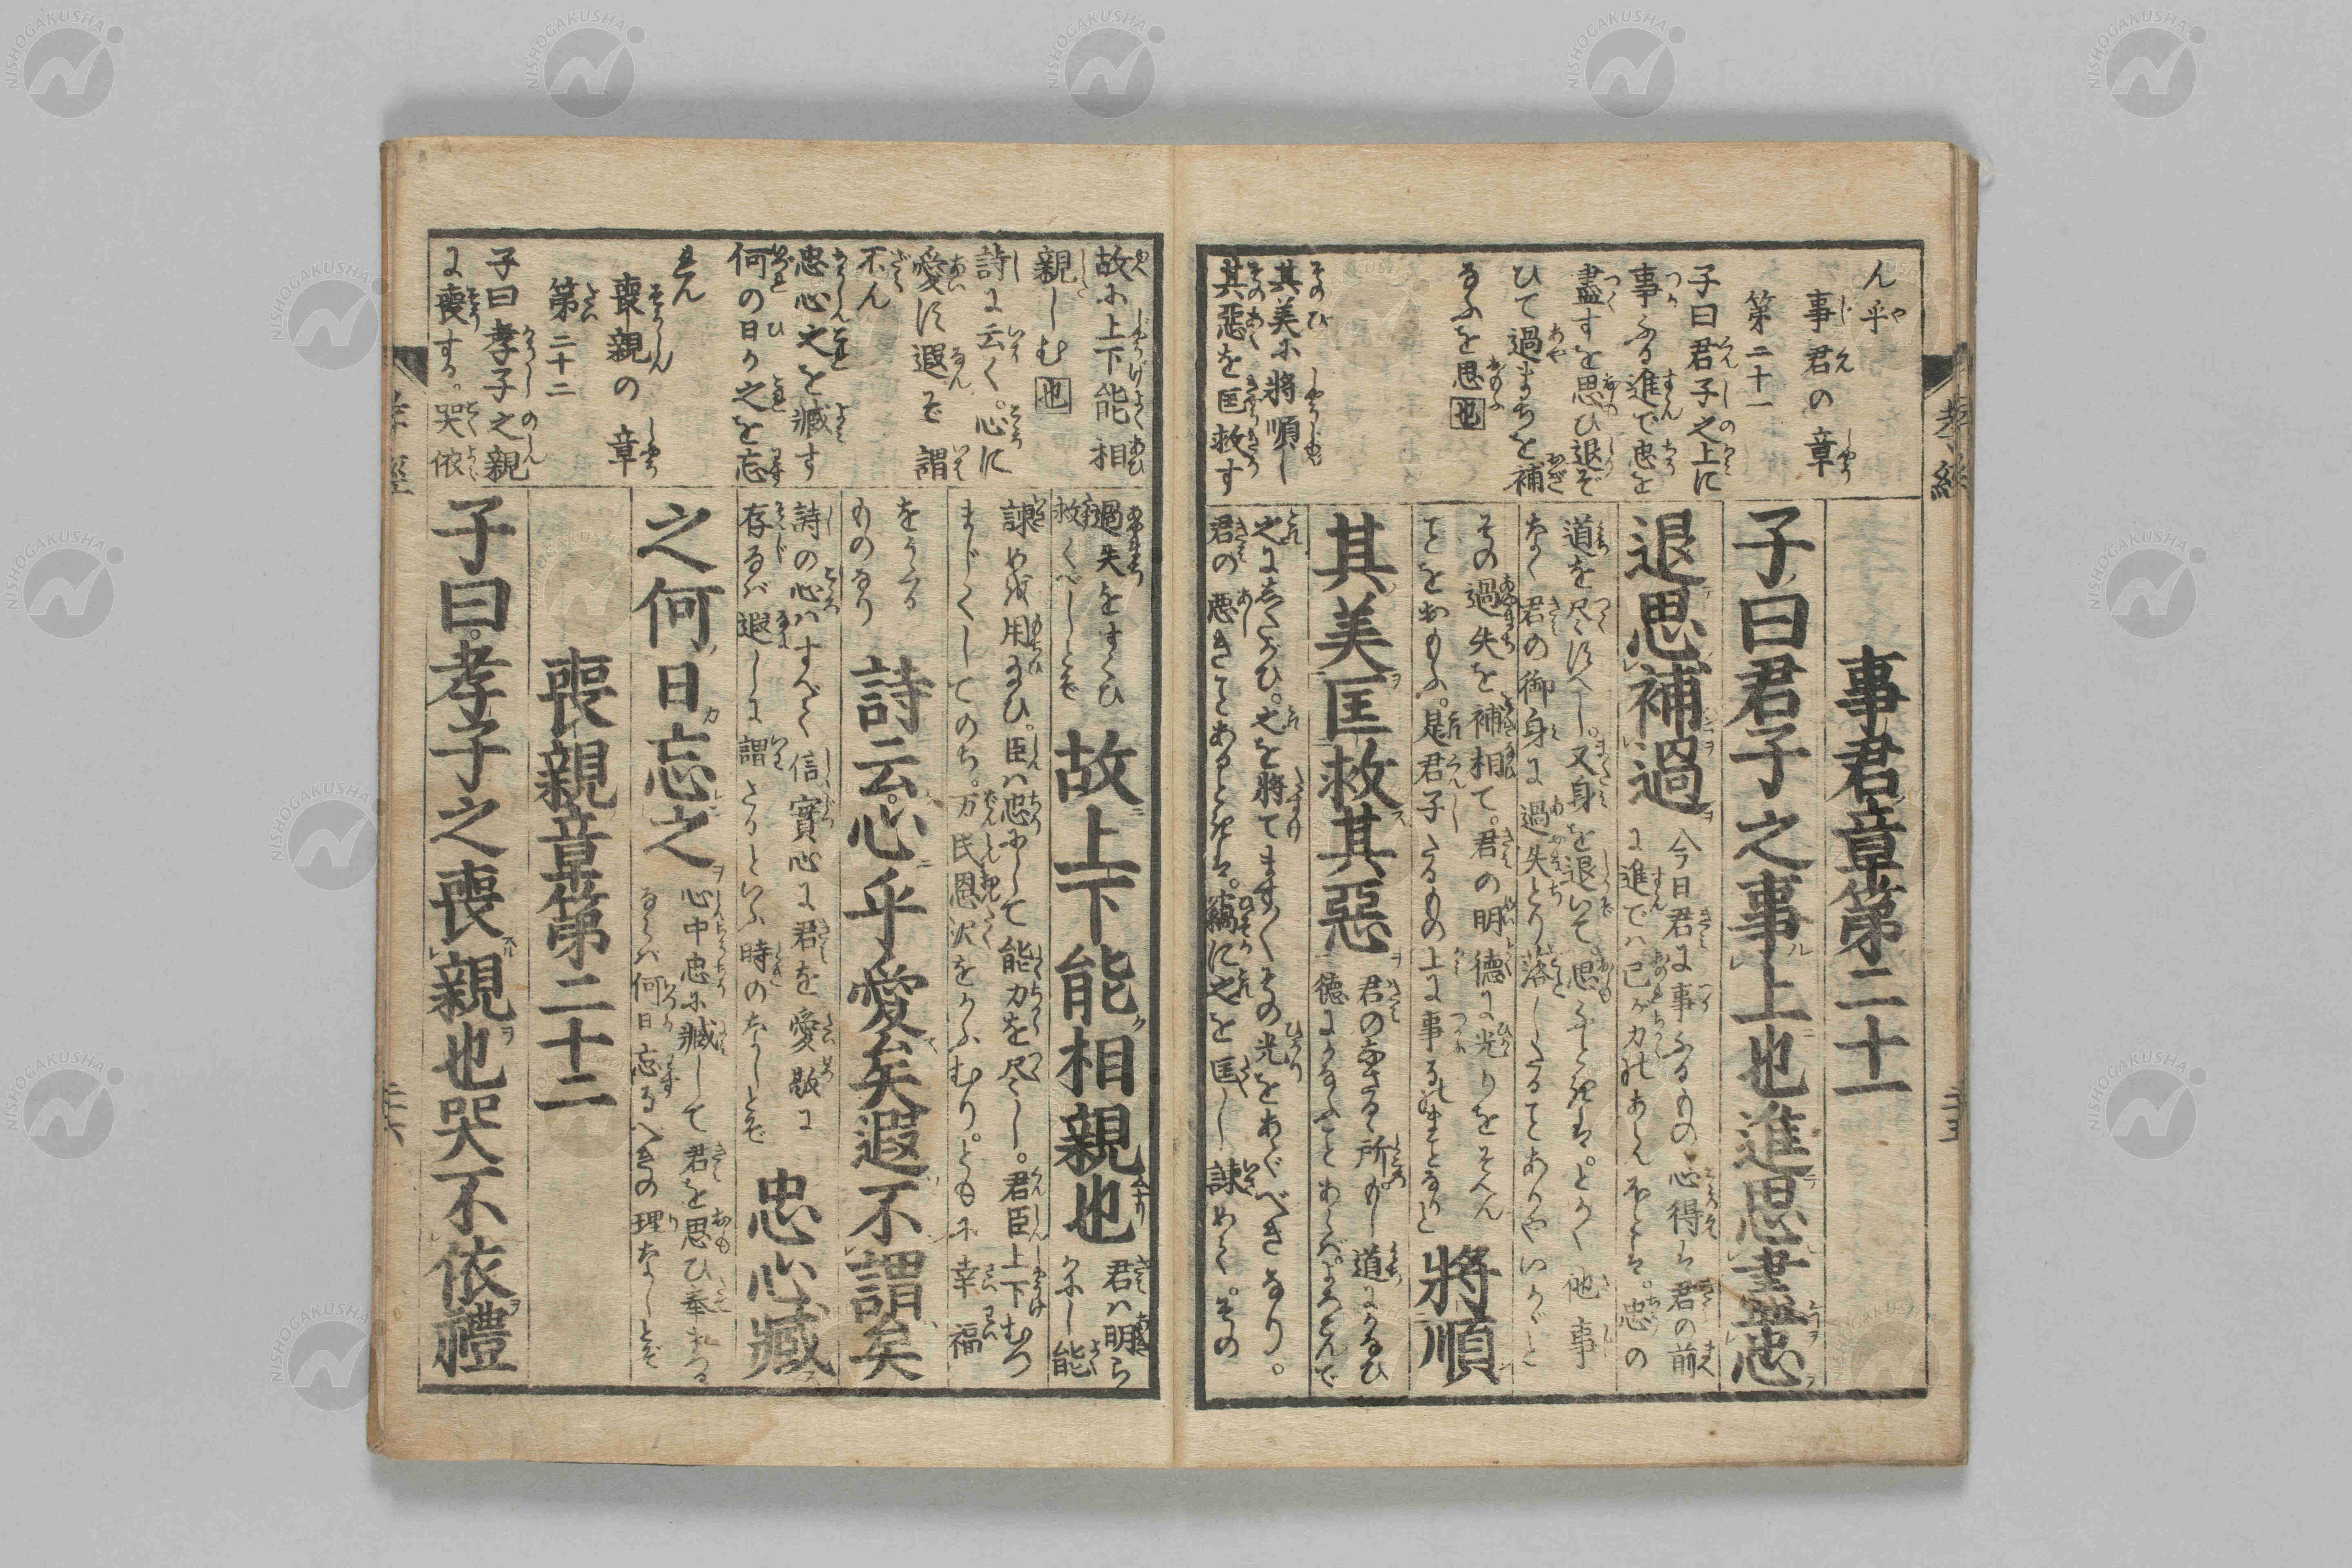 ん乎
事君の章
第二十一
子曰君子之上に
事ふる進で忠を
盡すを思ひ退ぞ
ひて過まちを補
なふを思也
其美に將順し
其惡を匡救す
事君章第二十一
子曰君子之事上也進思盡忠
退思補過
今日君に事ふるもの心得は君の前
に進では己が力のあらんほどは。忠の
道を尽すべし。又身を退いて。思ふときは。とかく他事
なく君の御身に過失とり落したることありやいかゞと
その過失を補相て。君の明徳に光りをそへん
ことをおもふ。是君子たるもの上に事るのまことなりと
將順
其美匡救其惡
君のなさる所。もし道にかなひ
徳にかなふことあらば。よろこんで
之にしたがひ。之を將てます〳〵その光をあぐべきなり。
君の悪きことあるときは。竊に之を匡し諌めて。その
孝經
二十五
故に上下能相
親しむ也
詩に云く。心に
愛す遐ぞ謂
不ん
忠心之を臧す
何の日か之を忘
れん
喪親の章
第二十二
子曰孝子之親
に喪する。哭依
過失をすくひ
救くべしとぞ
故上下能相親也
君は明らかにし能
諌めを用ゐひ。臣は忠にして能力を尽し。君臣上下むつ
まじくしてのち。万民恩沢をかふむり。ともに幸福
をうくる
ものなり
詩云。心乎愛矣遐不謂矣
詩の心はすべて信實心に君を愛敬に
存るば遐しに謂たるといふ時のなしとぞ
忠心臧
之何日忘之
心中忠に臧して君を思ひ奉れる
ならば何日忘るべきの理なしとぞ
喪親章第二十二
子曰。孝子之喪親也哭不依禮
孝經
二十六